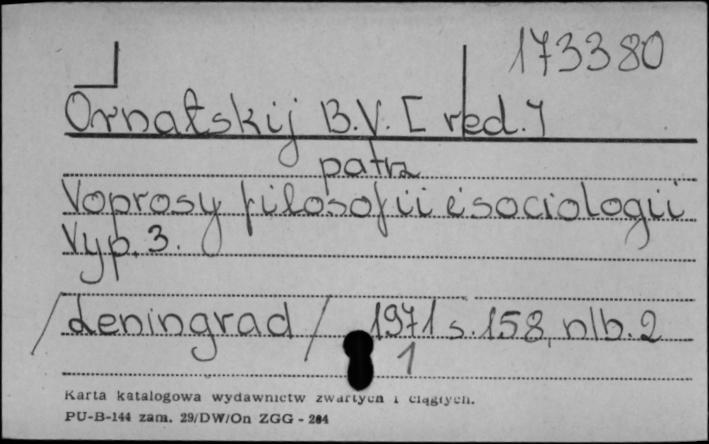 173380
Ornatskij B.V. [red.]
patrz
Voprosy filosofii i sociologii
Vyp. 3.
/Leningrad/ 1971 s. 158, nlb. 2
1
Karta katalogowa wydawnictw zwartych i ciągłych.
PU-B-144 zam. 29/DW/On ZGG - 284